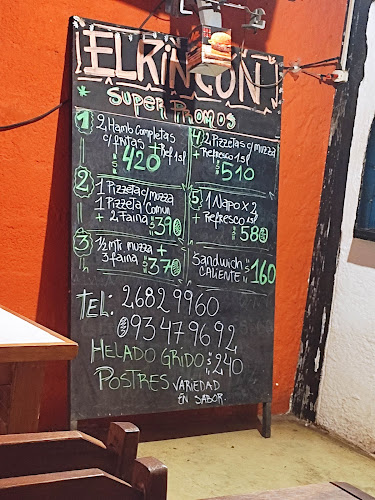 EL RINCÓN
SUPER PROMOS
1 2 Hamb Completas
c/fritas + Ref 1.5l
$420
2 1 Pizzeta c/muzza
1 Pizzeta Comun
+ 2 Faina $390
3 ½ mtr muzza +
3 faina $370
4) 2 Pizzetas c/muzza
+ Refresco 1.5l
$510
5) 1 Napo x 2
+ Refresco 1.5l
$580
Sandwich
CALIENTE $160
TEL: 2682 9960
093 479692
HELADO GRIDO $240
POSTRES VARIEDAD
EN SABOR.